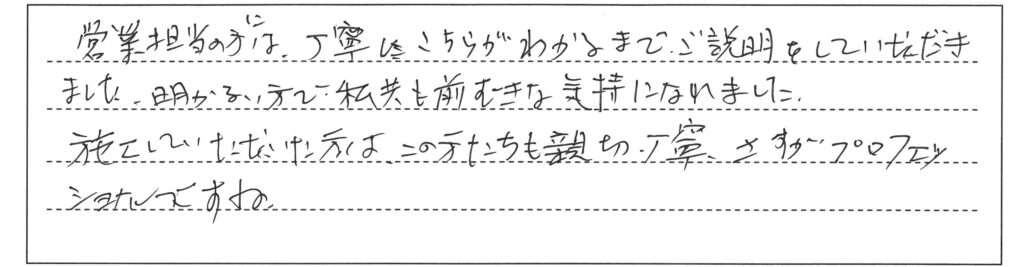 営業担当の方には、丁寧にこちらがわかるまでご説明をしていただき
ました。明かるい方で私共も前むきな気持になれました。
施工していただいた方は、この方たちも親切、丁寧、さすがプロフェッ
ショナルですね。